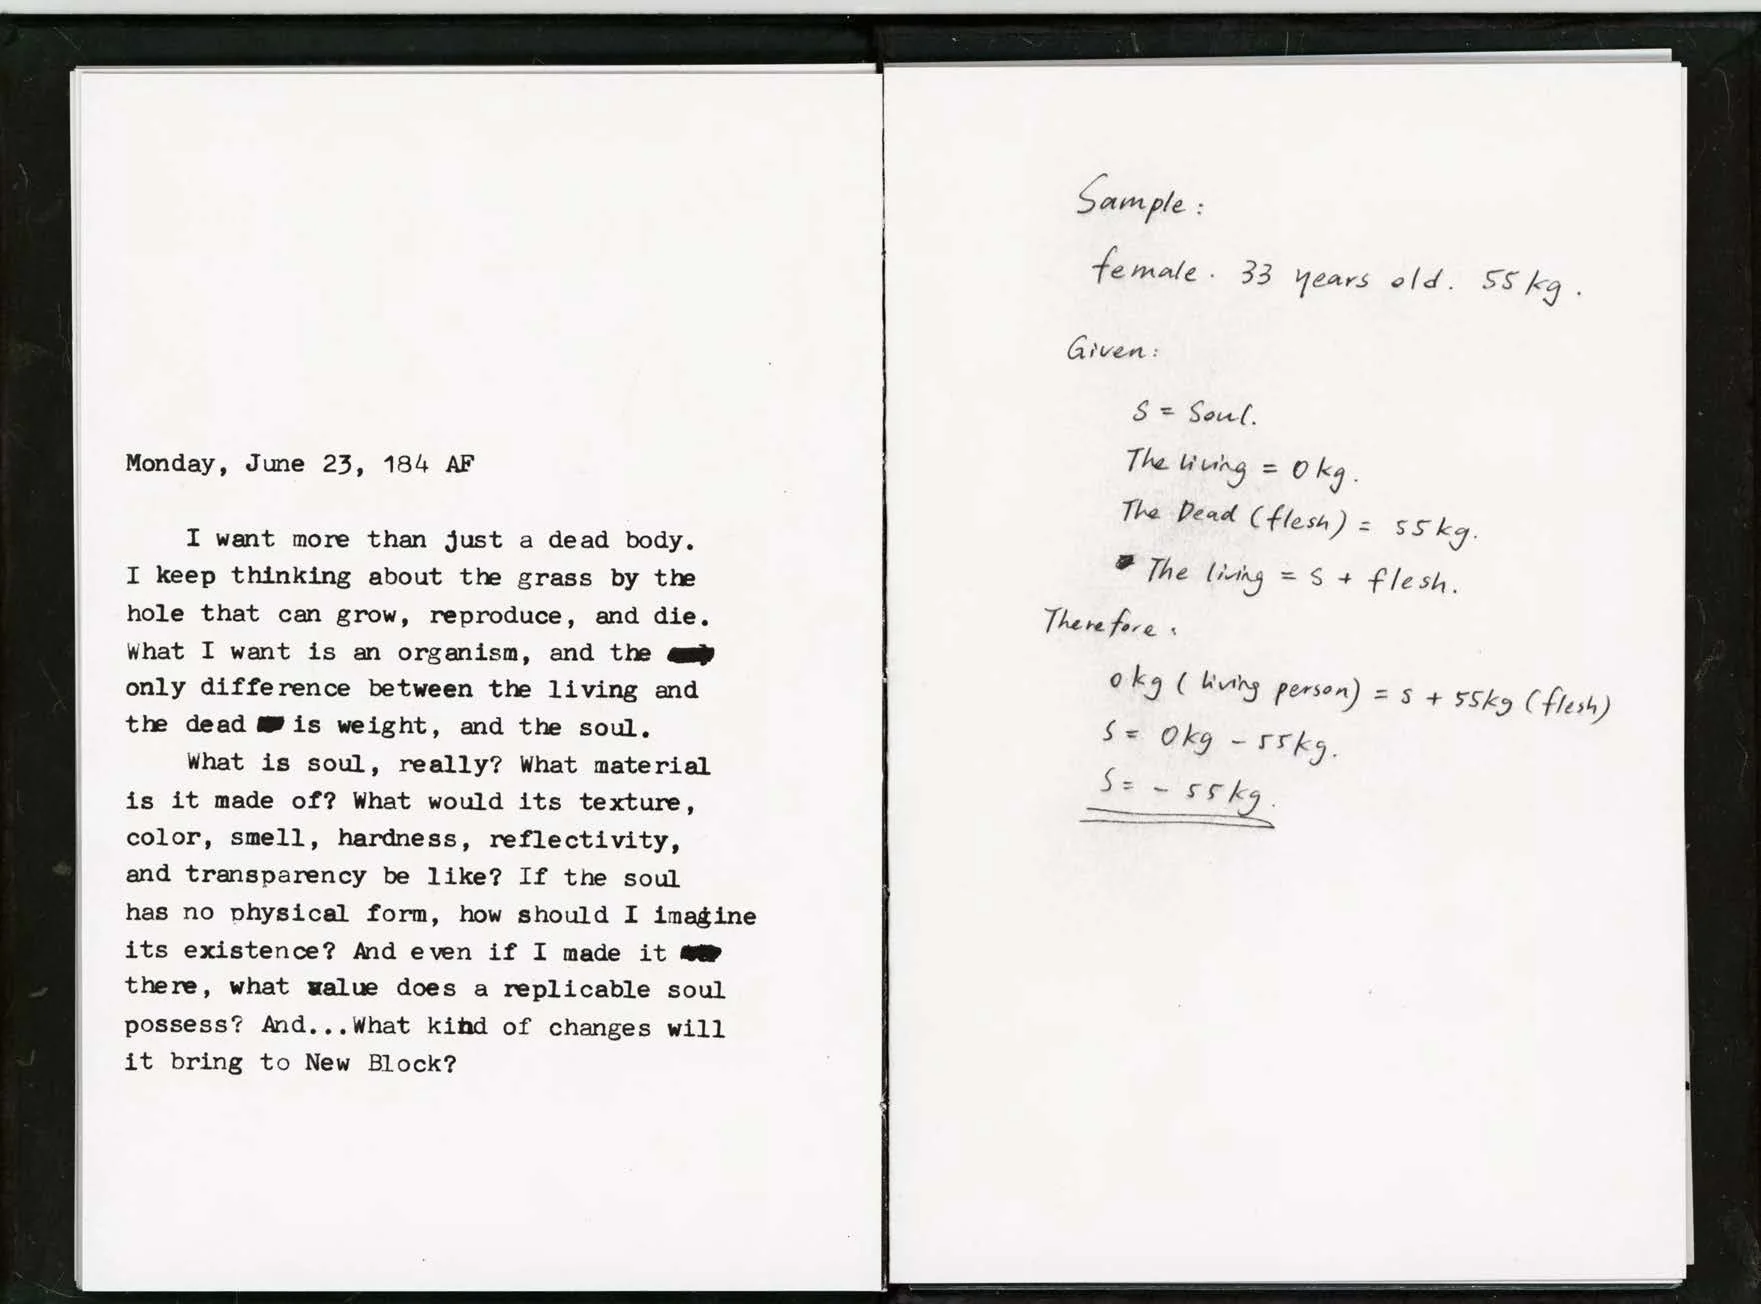 Monday, June 23, 184 AF
I want more than just a dead body.
I keep thinking about the grass by the
hole that can grow, reproduce, and die.
What I want is an organism, and the
only difference between the living and
the dead is weight, and the soul.
What is soul, really? What material
is it made of? What would its texture,
color, smell, hardness, reflectivity,
and transparency be like? If the soul
has no physical form, how should I imagine
its existence? And even if I made it
there, what value does a replicable soul
possess? And...What kind of changes will
it bring to New Block?
Sample:
female. 33 years old. 55kg.
Given:
S = Soul.
The living = 0kg.
The Dead (flesh) = 55kg.
The living = S + flesh.
Therefore:
0kg (living person) = S + 55kg (flesh)
S = 0kg - 55kg.
S = - 55kg.